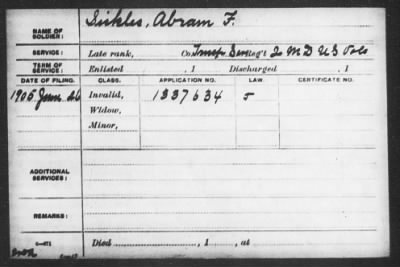 NAME OF SOLDIER: Sickles, Abram F.
SERVICE: Late rank, Co. Transf. Reg't 2 M D U S Vols
TERM OF SERVICE: Enlisted , 1 Discharged , 1
DATE OF FILING. CLASS. APPLICATION NO. LAW. CERTIFICATE NO.
1905 June 26 Invalid, 1337634 J
Widow,
Minor,
ADDITIONAL SERVICES:
REMARKS:
Died , 1 , at